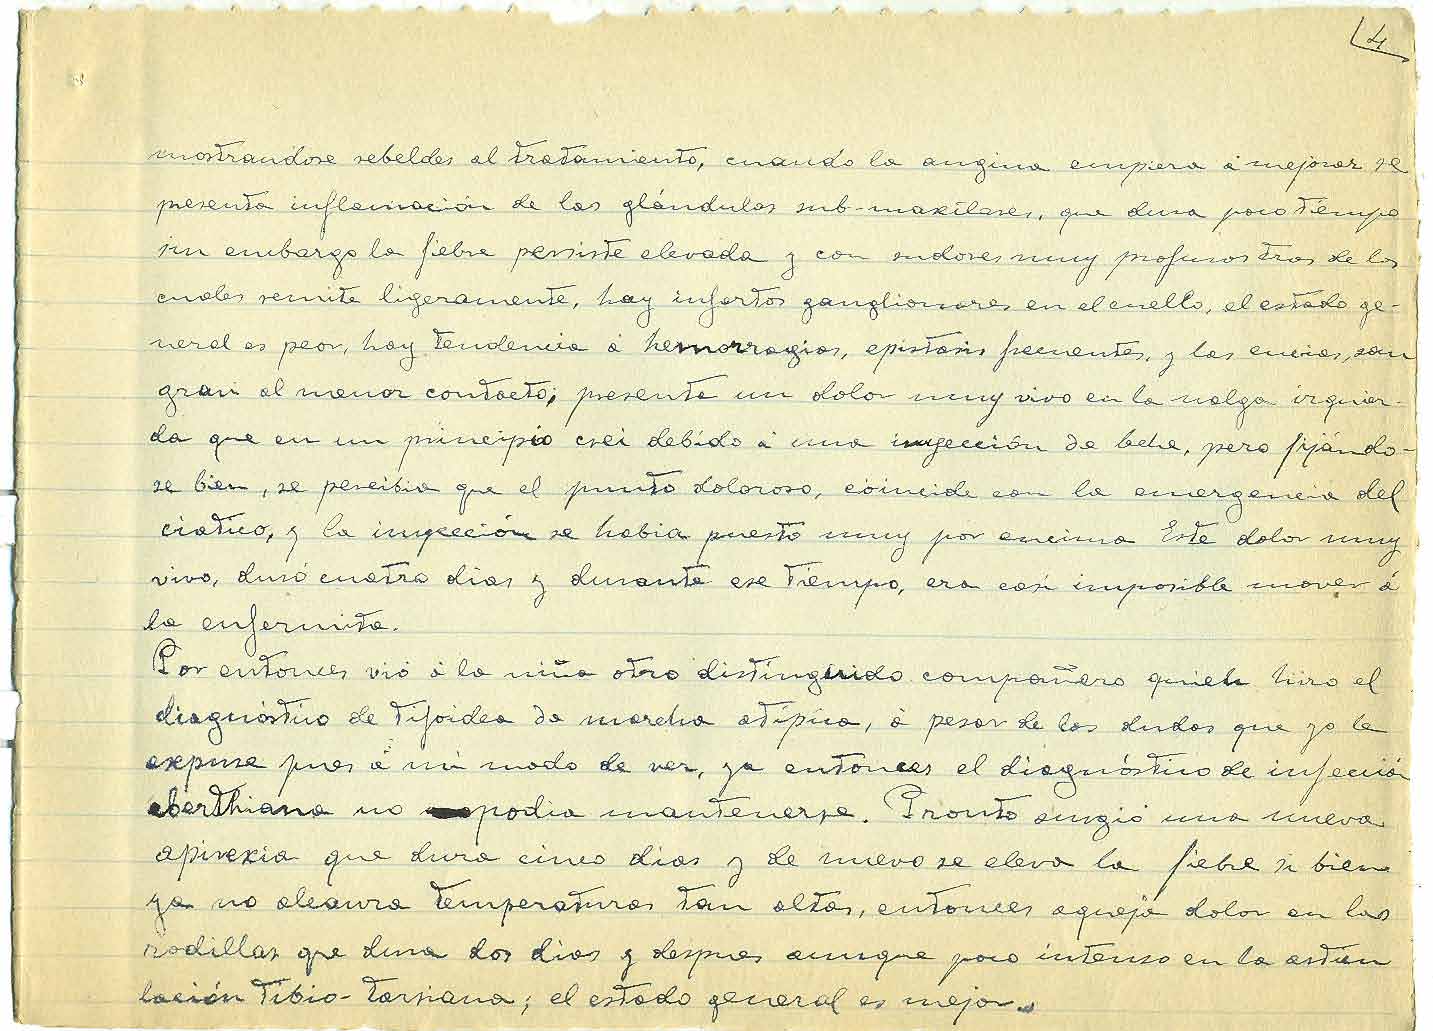 4
mostrandose rebeldes al tratamiento, cuando la angina empieza á mejorar se
presenta inflamación de las glándulas sub-maxilares, que dura poco tiempo
sin embargo la fiebre persiste elevada y con sudores muy profusos tras de los
cuales remite ligeramente, hay infartos ganglionares en el cuello, el estado ge-
neral es peor, hay tendencia á hemorragias, epistasis frecuentes, y las encias, san
gran al menor contacto; presenta un dolor muy vivo en la nalga izquier-
da que en un principio crei debido á una inyección de leche, pero fijándo-
se bien, se percibia que el punto doloroso, coincide con la emergencia del
ciatico, y la inyección se habia puesto muy por encima Este dolor muy
vivo, duró cuatro dias y durante ese tiempo, era casi imposible mover á
la enfermita.
Por entonces vió á la niña otro distinguido compañero quien hizo el
diagnóstico de tifoidea de marcha atípica, á pesar de las dudas que yo le
expuse pues á mi modo de ver, ya entonces el diagnóstico de infección
eberthiana no podia mantenerse. Pronto surgió una nueva
apirexia que dura cinco dias y de nuevo se eleva la fiebre si bien
ya no alcanza temperaturas tan altas, entonces aqueja dolor en las
rodillas que dura dos dias y despues aunque poco intenso en la articu
lación tibio-tarsiana; el estado general es mejor.